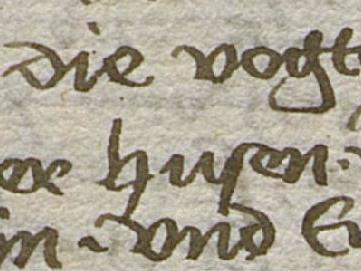 die vogt
er husen.
in. vnd